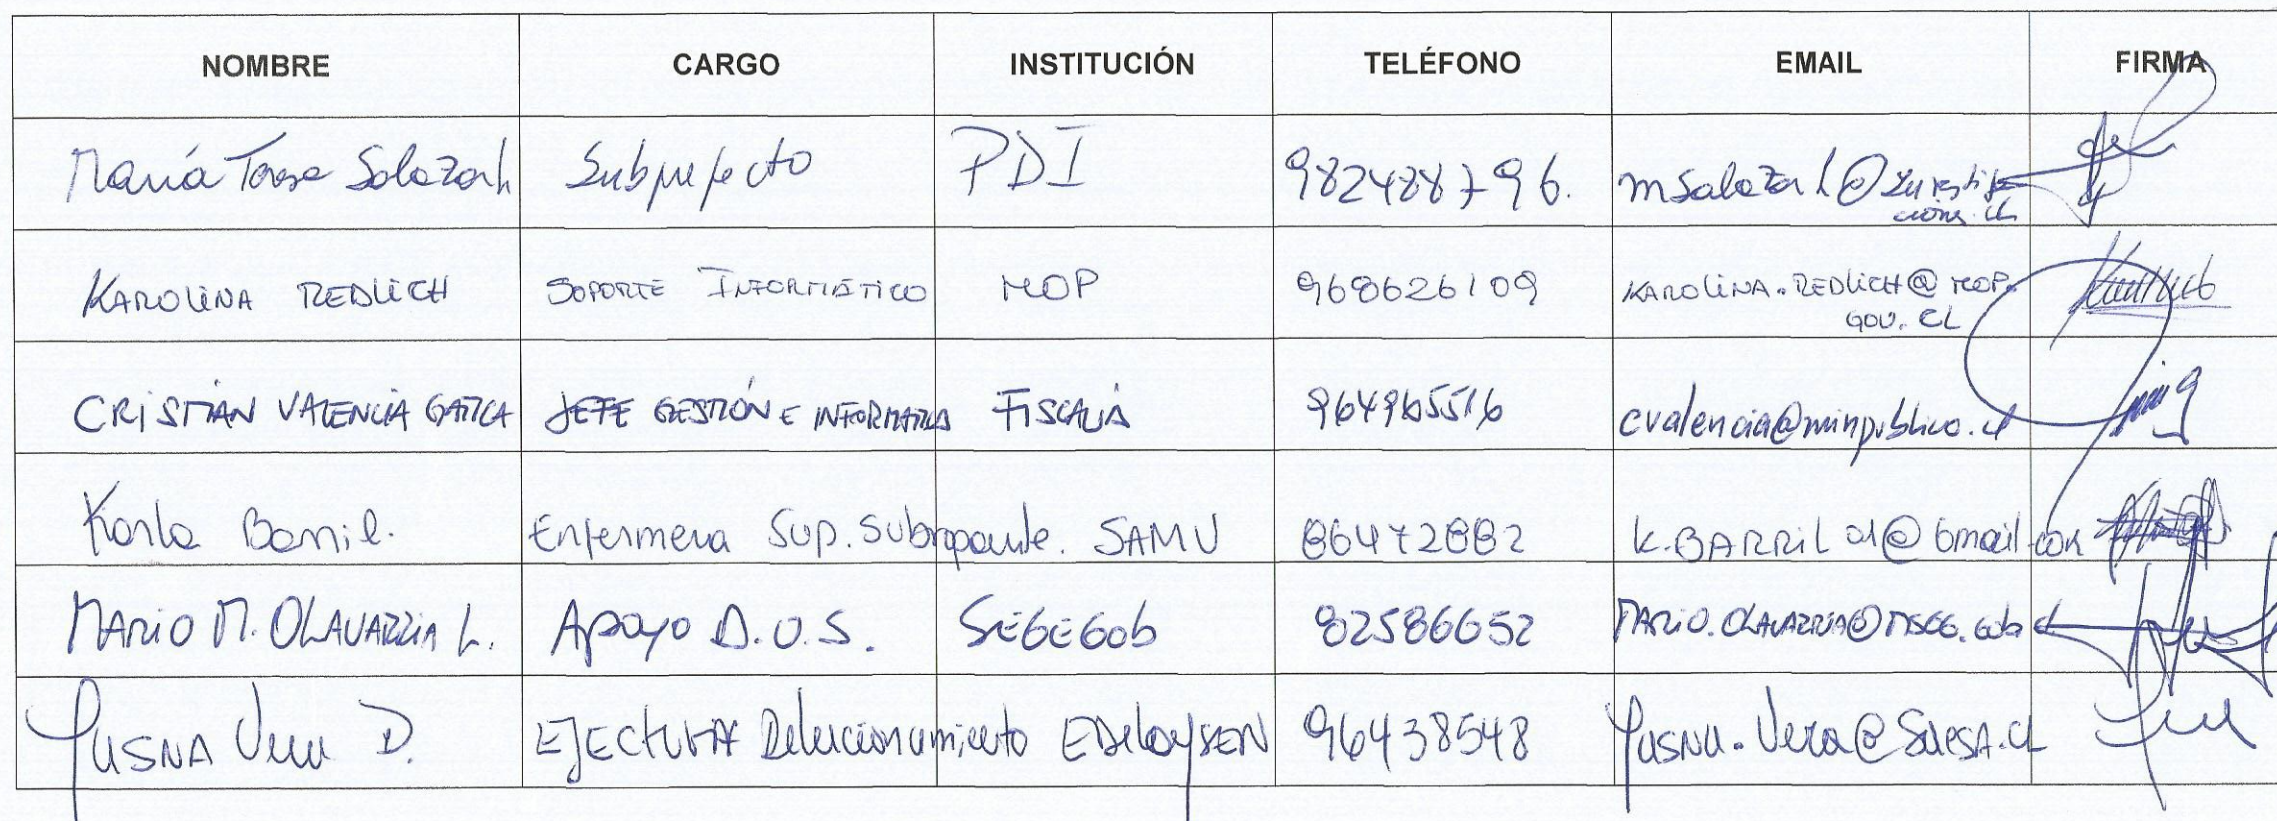 NOMBRE CARGO INSTITUCIÓN TELÉFONO EMAIL FIRMA
María Teresa Salazar h Subprefecto PDI 982488796. msalazarh@investiga
ciones.cl
KAROLINA REDLICH SOPORTE INFORMÁTICO MOP 968626109 KAROLINA.REDLICH@MOP.
GOV.CL
CRISTIÁN VALENCIA GATICA JEFE GESTIÓN E INFORMATICA FISCALIA 964965516 cvalencia@minpublico.cl
Karla Barril. Enfermera Sup. Subrogante. SAMU 86472882 K.BARRIL01@Gmail.com
MARIO M. OLAVARRIA L. Apoyo D.O.S. SEGEGOB 82586652 MARIO.OLAVARRIA@MSGG.GOB.CL
YUSNA Vera D. EJECUTIVA Relacionamiento EDELAYSEN 96438548 Yusna.Vera@SAESA.CL